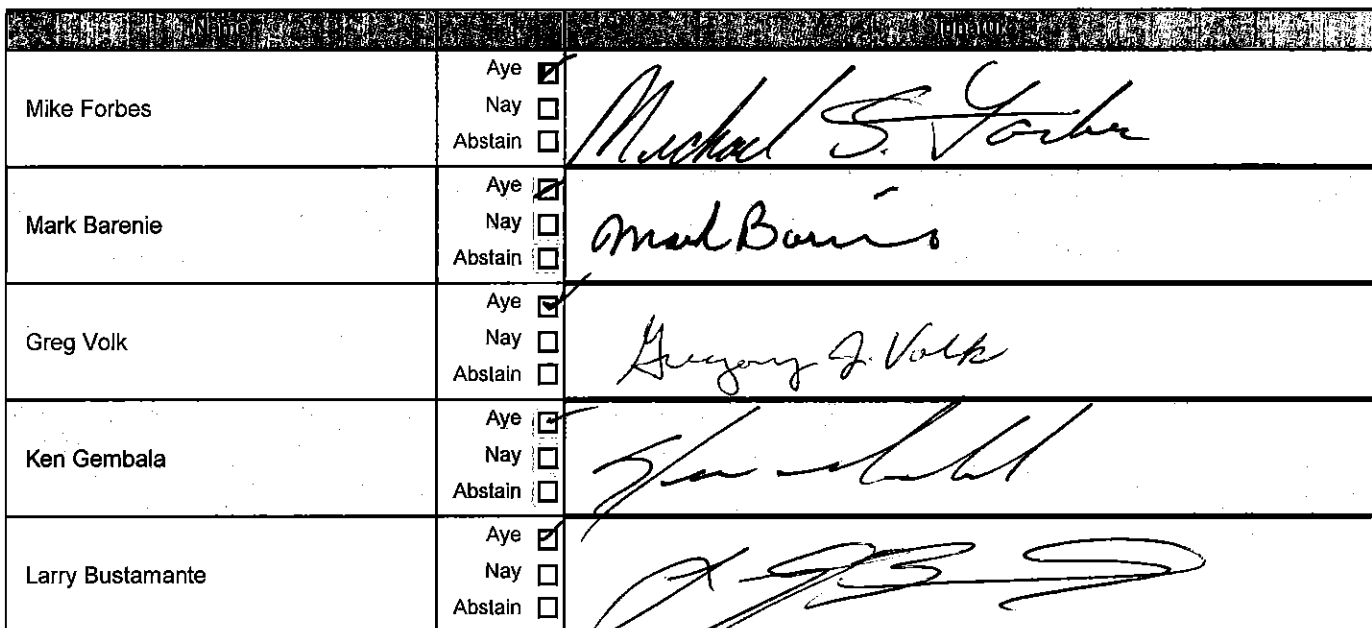 Name Signature
Mike Forbes
Aye ☑
Nay ☐
Abstain ☐
Michael S. Forbes
Mark Barenie
Aye ☑
Nay ☐
Abstain ☐
Mark Barenie
Greg Volk
Aye ☑
Nay ☐
Abstain ☐
Gregory J. Volk
Ken Gembala
Aye ☑
Nay ☐
Abstain ☐
Larry Bustamante
Aye ☑
Nay ☐
Abstain ☐